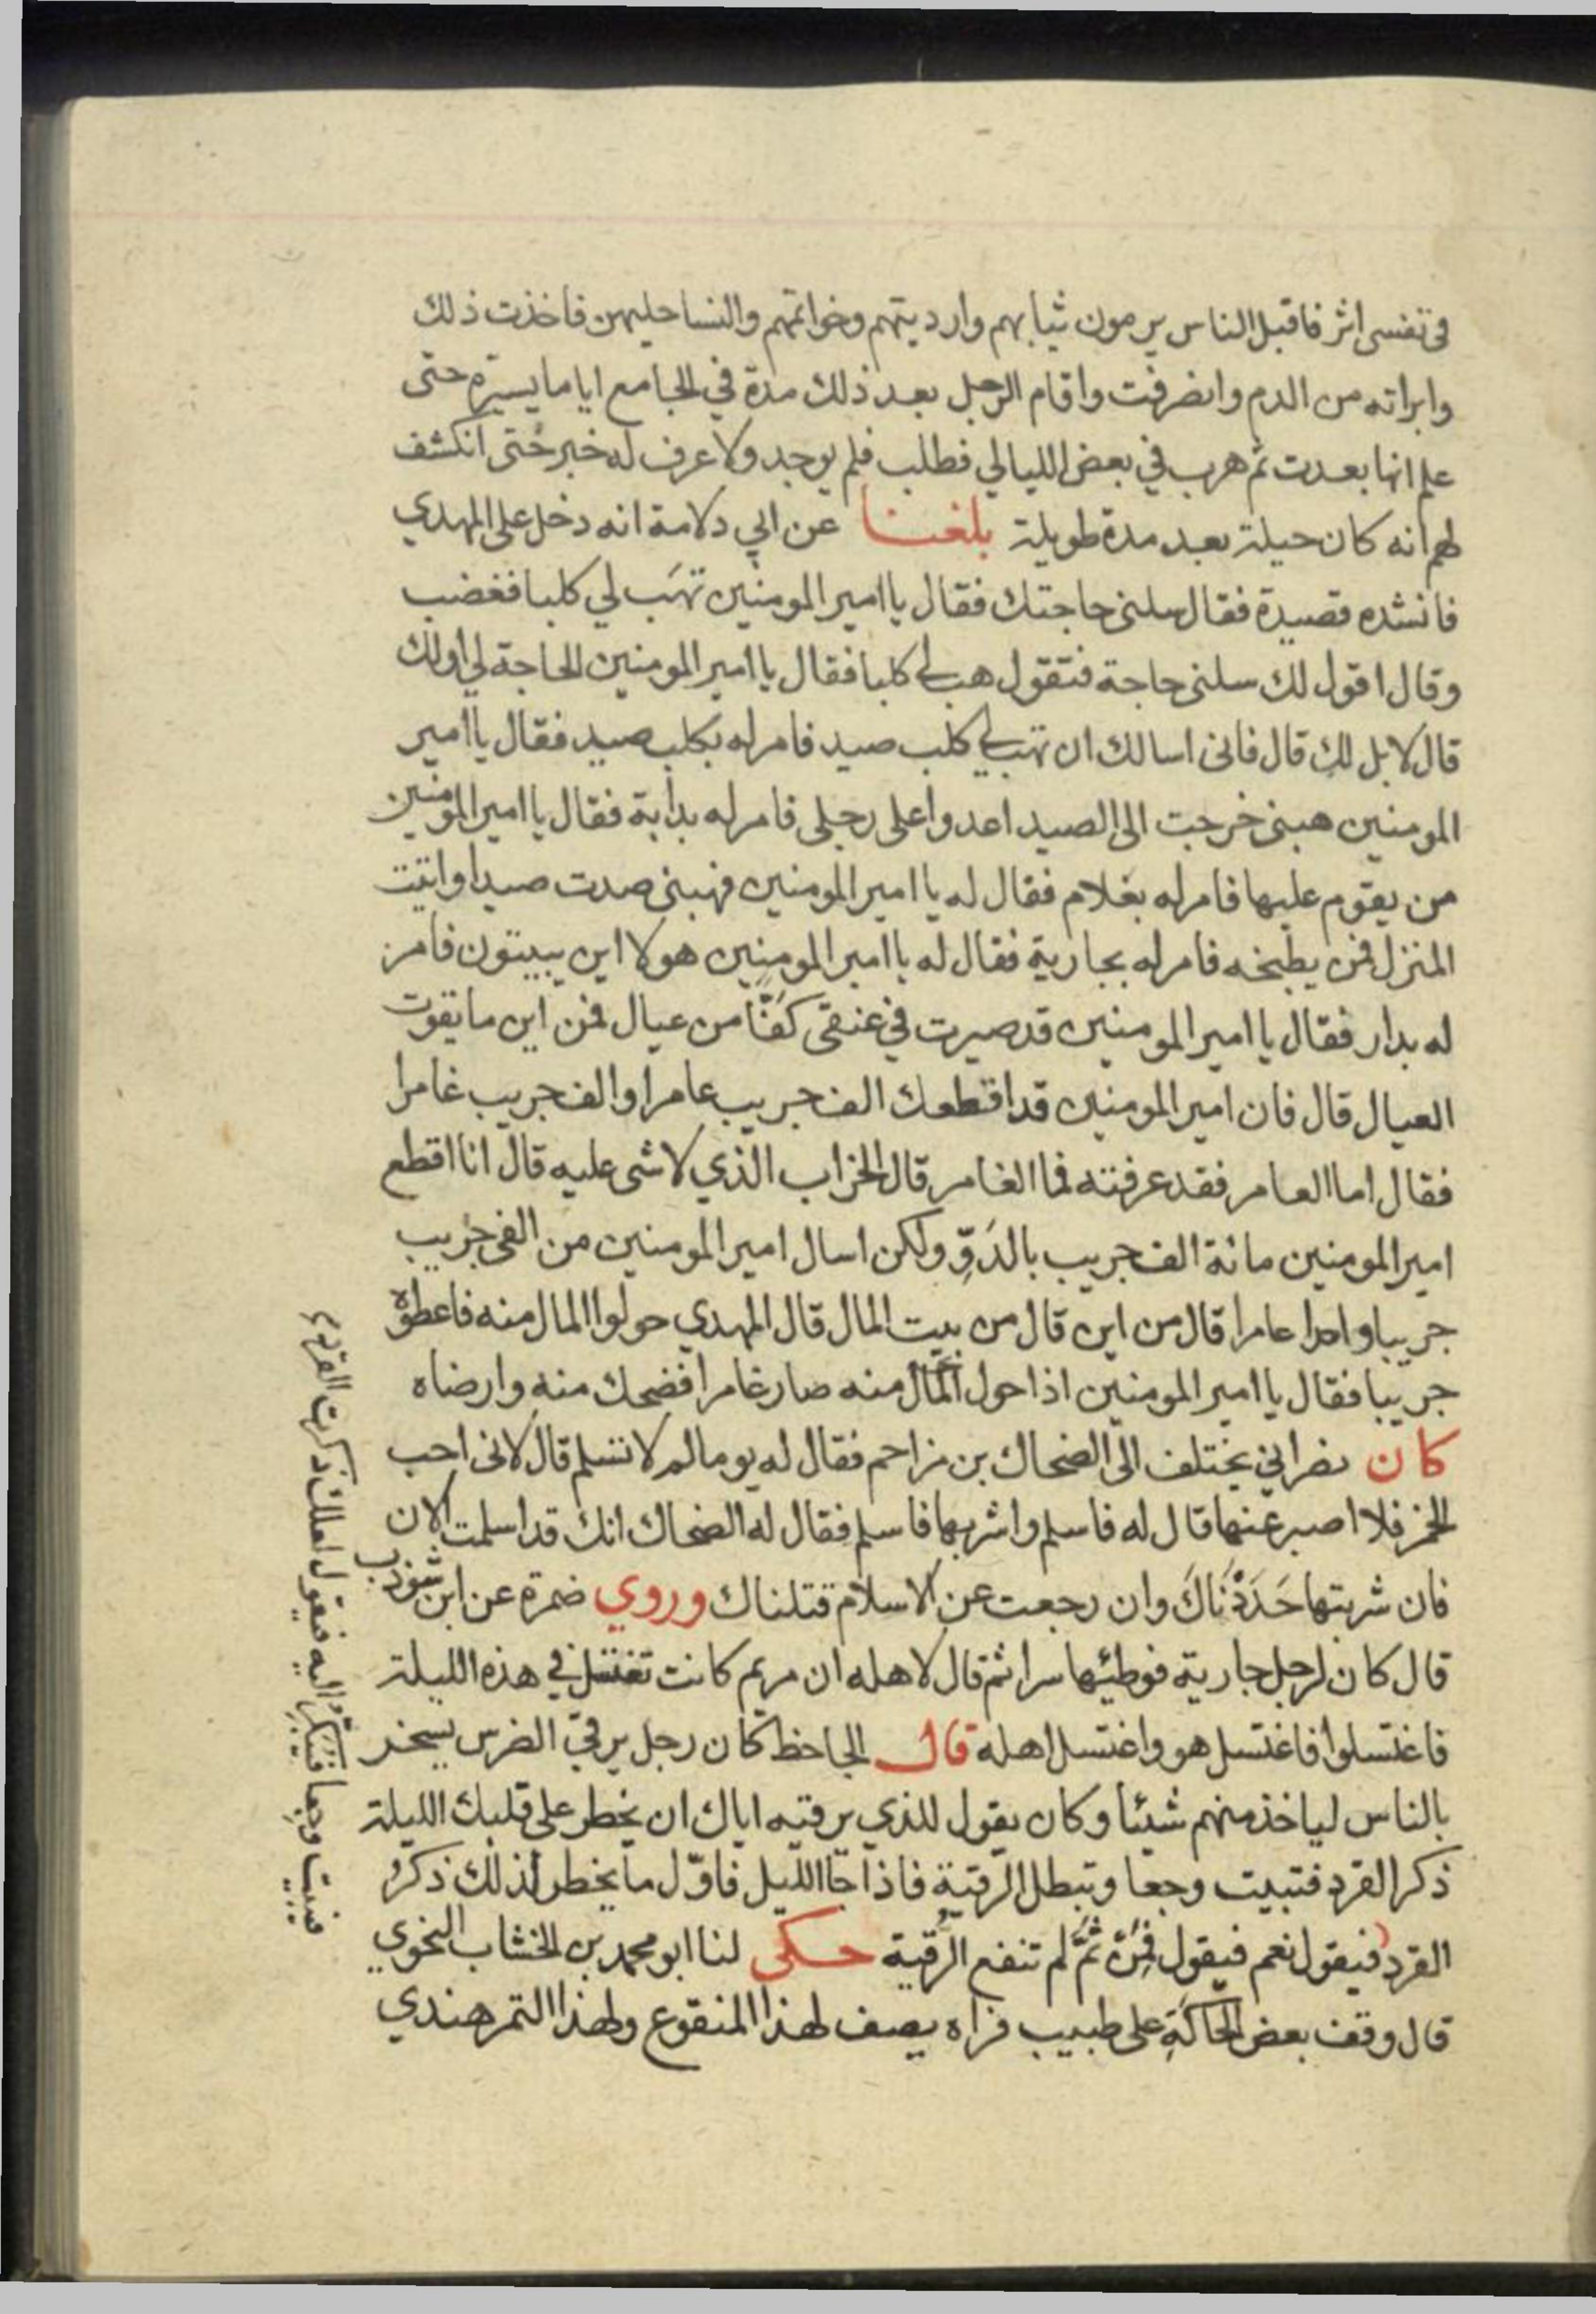 في نفسى اثر فاقبل الناس يرمون ثيابهم وارديتهم وخواتمهم والنسا حليهن فاخذت ذلك
وابراته من الدم وانصرفت واقام الرجل بعد ذلك مدة في الجامع اياما يسيرة حتى
علم انها بعدت ثم هرب في بعض الليالي فطلب فلم يوجد ولا عرف له خبر حتى انكشف
لهم انه كان حيلة بعد مدة طويلة بلغنا عن ابي دلامة انه دخل على المهدي
فانشده قصيدة فقال سلنى حاجتك فقال يا امير المومنين تهَب لي كلبا فغضب
وقال اقول لك سلنى حاجة فتقول هب لي كلبا فقال يا امير المومنين الحاجة لي او لك
قال لا بل لك قال فانى اسالك ان تهب لي كلب صيد فامر له بكلب صيد فقال يا امير
المومنين هبنى خرجت الى الصيد اعدوا على رجلى فامر له بدابة فقال يا امير المومنين
من يقوم عليها فامر له بغلام فقال له يا امير المومنين فهبنى صدت صيدا واتيت
المنزل فمن يطبخه فامر له بجارية فقال له يا امير المومنين هولا اين يبيتون فامر
له بدار فقال يا امير المومنين قد صيرت في عنقى كفّا من عيال فمن اين ما يقوت
العيال قال فان امير المومنين قد اقطعك الف جريب عامرا والف جريب غامرا
فقال اما العامر فقد عرفته فما الغامر قال الخراب الذي لا شى عليه قال انا اقطع
امير المومنين مائة الف جريب بالدَوِّ ولكن اسال امير المومنين من الفى جريب
جريبا واحدا عامرا قال من اين قال من بيت المال قال المهدي حولوا المال منه فاعطوه
جريبا فقال يا امير المومنين اذا حول المال منه صار غامرا فضحك منه وارضاه
كان نصراني يختلف الى الضحاك بن مزاحم فقال له يوما لم لا تسلم قال لانى احب
الخمر فلا اصبر عنها قال له فاسلم واشربها فاسلم فقال له الضحاك انك قد اسلمت الان
فان شربتها حَدَدْنَاكَ وان رجعت عن الاسلام قتلناك وروي ضمرة عن ابن شوذب
قال كان لرجل جارية فوطئها سرا ثم قال لاهله ان مريم كانت تغتسل في هذه الليلة
فاغتسلوا فاغتسل هو واغتسل اهله قال الجاحظ كان رجل يرقي الضرس يسخر
بالناس لياخذ منهم شيئا وكان يقول للذي يرقيه اياك ان يخطر على قلبك الليلة
ذكر القرد فتبيت وجعا وتبطل الرقية فاذا جا الليل فاوّل ما يخطر لذلك ذكر
القرد فيقول نعم فيقول فمِنْ ثَمَّ لم تنفع الرُّقية حكى لنا ابو محمد بن الخشاب النحوي
قال وقف بعض الحاكَةِ على طبيب فراه يصف لهذا المنقوع ولهذا التمرهندي
فيبيت وجعا فيبكر اليه فيقول لعلك ذكرت القرد